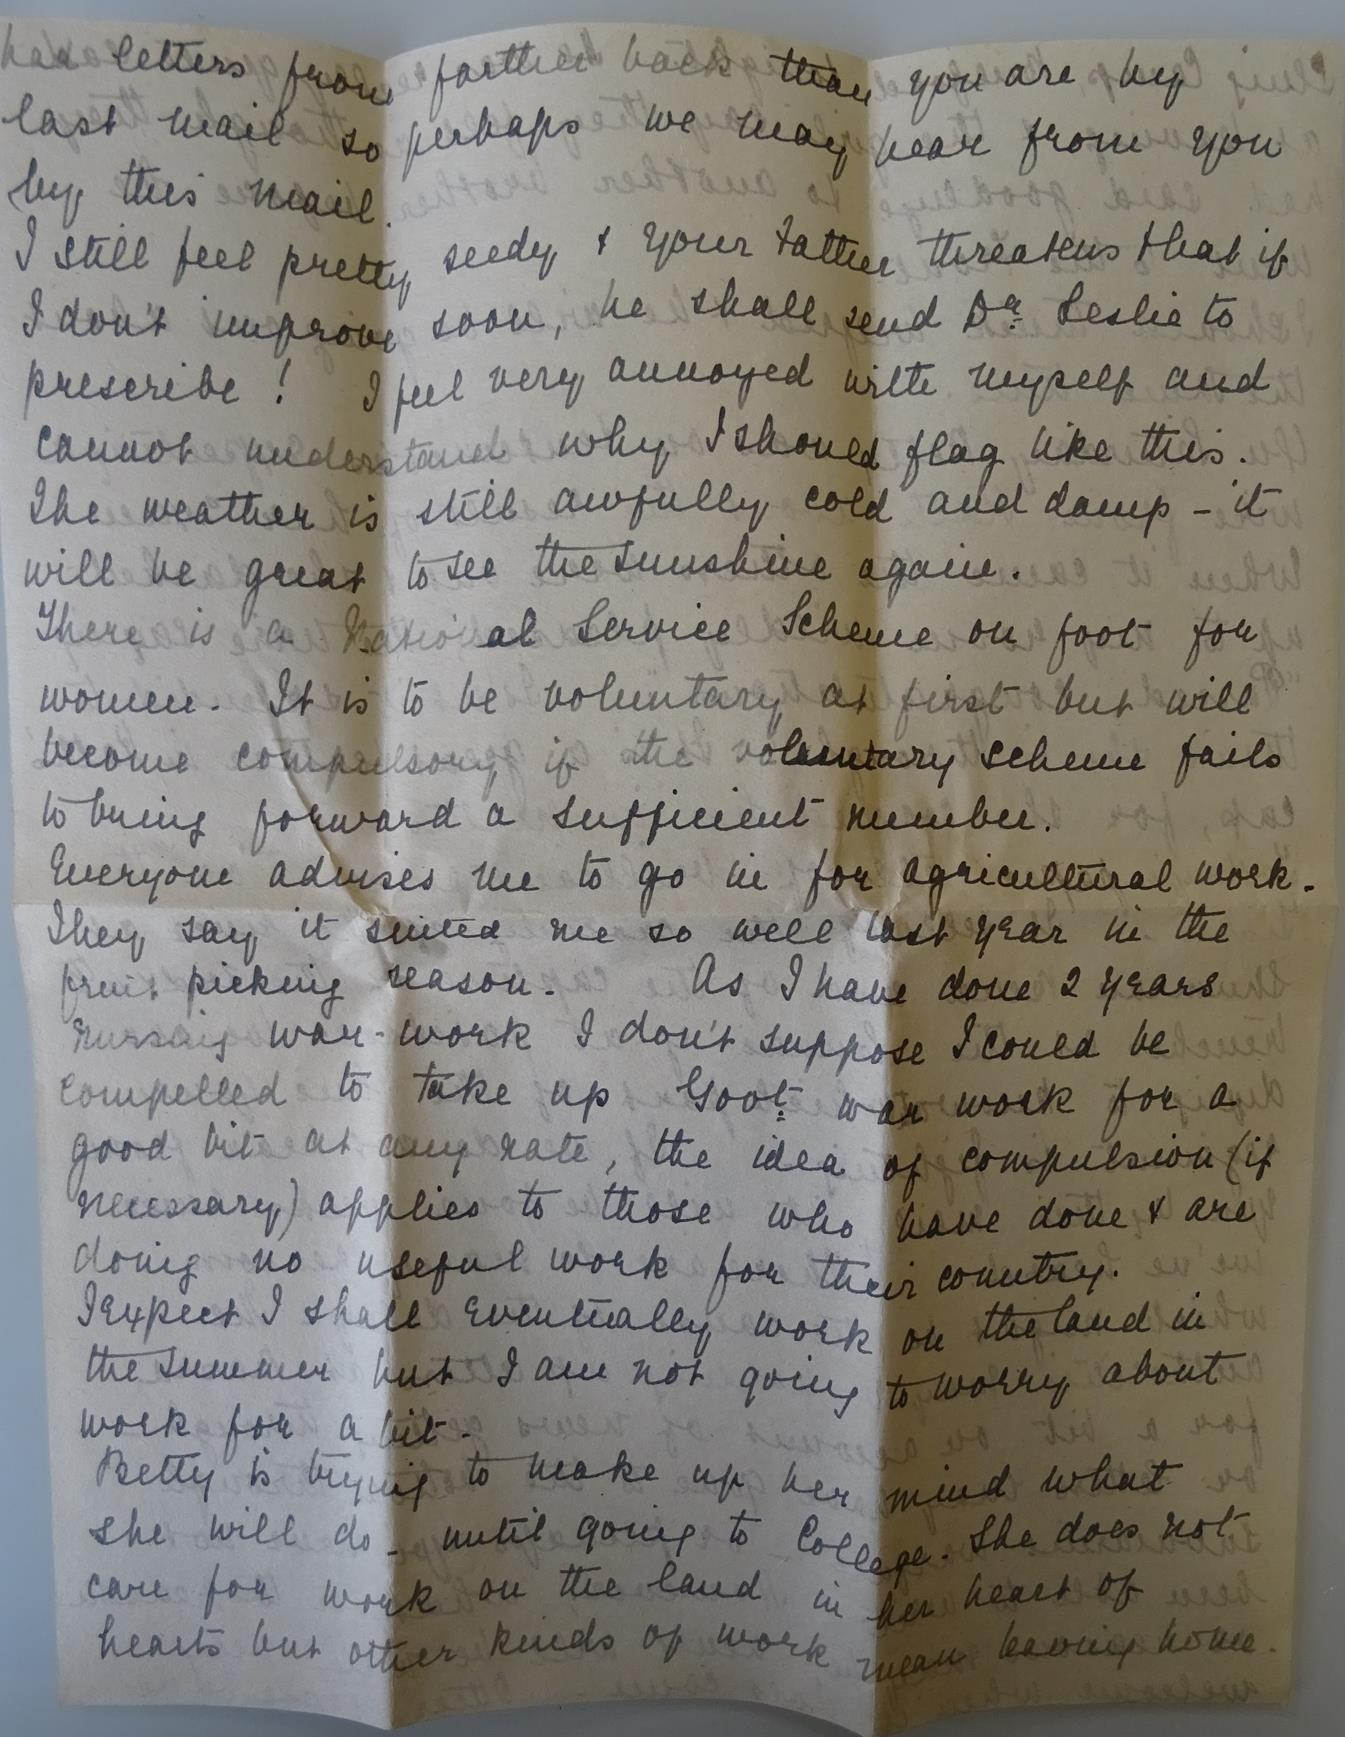 had letters from farther back than you are by
last mail so perhaps we may hear from you
by this mail.
I still feel pretty seedy & your Father threatens that if
I don't improve soon, he shall send Dr. Leslie to
prescribe! I feel very annoyed with myself and
cannot understand why I should flag like this.
The weather is still awfully cold and damp - it
will be great to see the sunshine again.
There is a National Service Scheme on foot for
women. It is to be voluntary at first but will
become compulsory if the voluntary scheme fails
to bring forward a sufficient number.
Everyone advises me to go in for agricultural work.
They say it suited me so well last year in the
fruit picking season. As I have done 2 years
nursing war-work I don't suppose I could be
compelled to take up Govt. war work for a
good bit at any rate, the idea of compulsion (if
necessary) applies to those who have done & are
doing no useful work for their country.
I expect I shall eventually work on the land in
the summer but I am not going to worry about
work for a bit.
Betty is trying to make up her mind what
she will do - until going to College. She does not
care for work on the land in her heart of
hearts but other kinds of work mean leaving home.